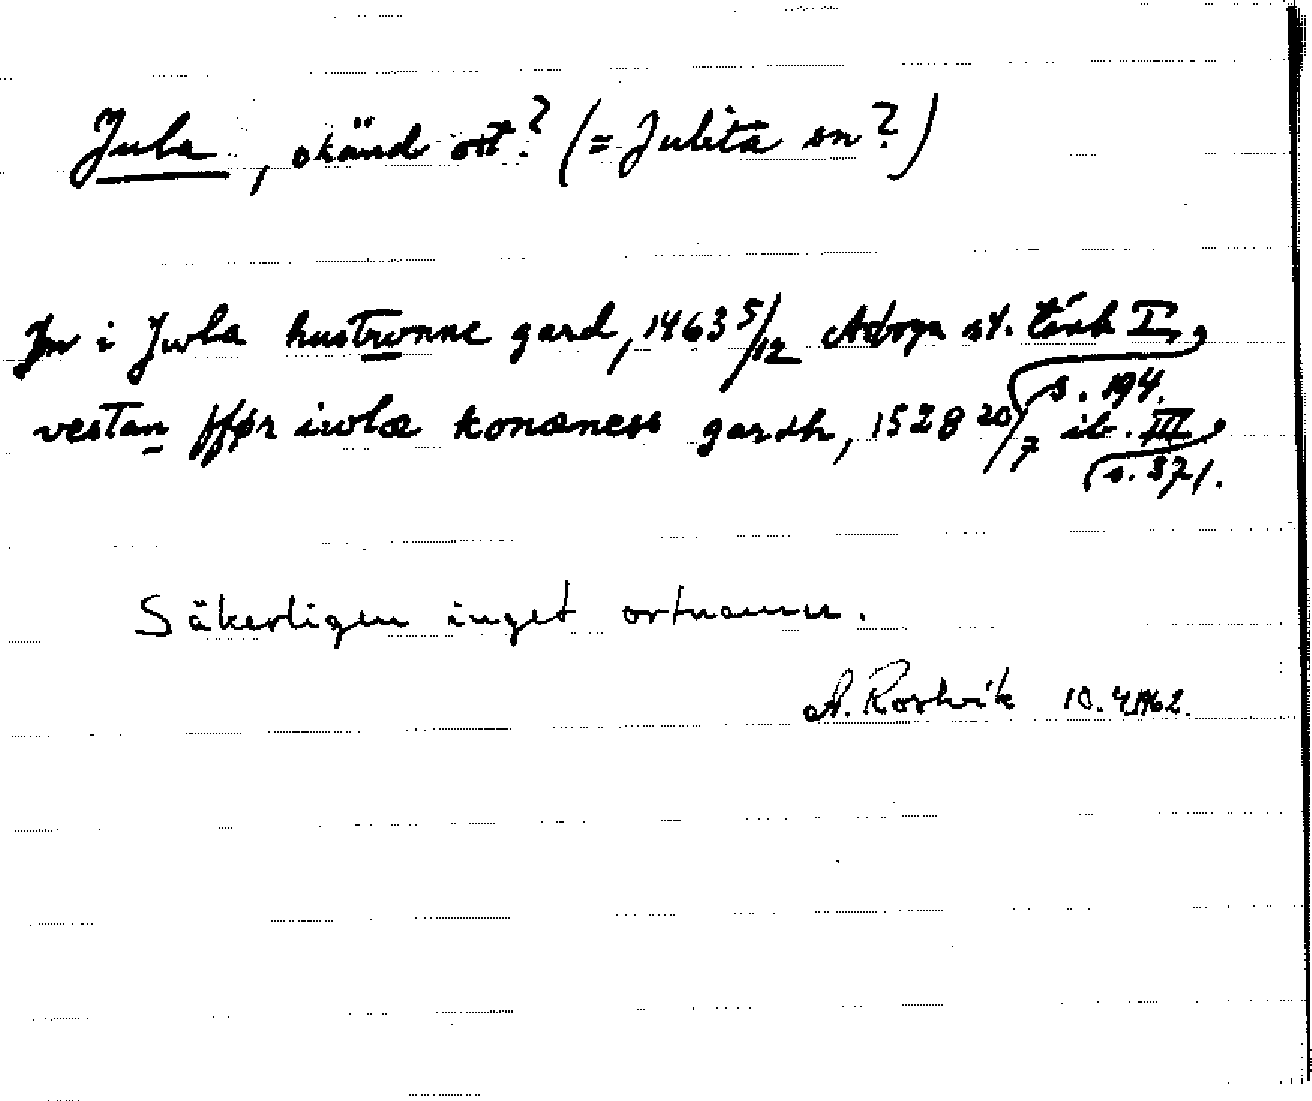 Jula, okänd ort? (= Julita sn?)
Jn i Jwla hustrwnne gard, 1463 5/12 Arboga st. tänk I,
s. 194.
vestan ffør iwlæ konæness gardh, 1528 20/7 ib. III,
s. 371.
Säkerligen inget ortnamn.
A. Rostvik 10.4.1962.